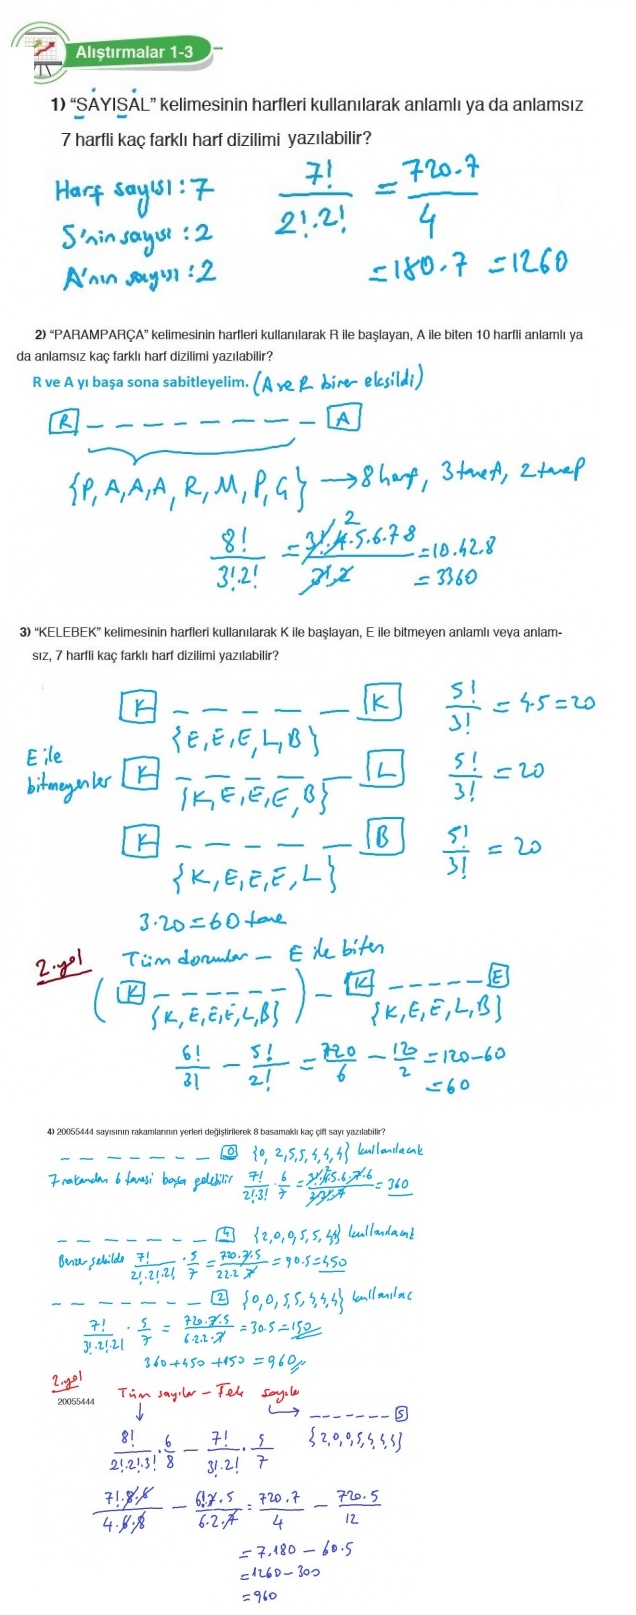 Alıştırmalar 1-3
1) “SAYISAL” kelimesinin harfleri kullanılarak anlamlı ya da anlamsız
7 harfli kaç farklı harf dizilimi yazılabilir?
Harf sayısı : 7
S'nin sayısı : 2
A'nın sayısı : 2
7! / 2!.2! = 720.7 / 4
= 180.7 = 1260
2) “PARAMPARÇA” kelimesinin harfleri kullanılarak R ile başlayan, A ile biten 10 harfli anlamlı ya
da anlamsız kaç farklı harf dizilimi yazılabilir?
R ve A yı başa sona sabitleyelim. (A ve R birer eksildi)
R _ _ _ _ _ _ _ _ A
{P, A, A, A, R, M, P, Ç} → 8 harf, 3 tane A, 2 tane P
8! / 3!.2! = 3!.4.5.6.7.8 / 3!.2 = 10.42.8
= 3360
3) “KELEBEK” kelimesinin harfleri kullanılarak K ile başlayan, E ile bitmeyen anlamlı veya anlam-
sız, 7 harfli kaç farklı harf dizilimi yazılabilir?
E ile bitmeyenler
K _ _ _ _ _ K 5! / 3! = 4.5 = 20
{E, E, E, L, B}
K _ _ _ _ _ L 5! / 3! = 20
{K, E, E, E, B}
K _ _ _ _ _ B 5! / 3! = 20
{K, E, E, E, L}
3.20 = 60 tane
2.yol Tüm durumlar – E ile biten
(K _ _ _ _ _ _) – K _ _ _ _ _ E
{K, E, E, E, L, B} {K, E, E, L, B}
6! / 3! – 5! / 2! = 720 / 6 – 120 / 2 = 120 – 60
= 60
4) 20055444 sayısının rakamlarının yerleri değiştirilerek 8 basamaklı kaç çift sayı yazılabilir?
_ _ _ _ _ _ _ 0 {0, 2, 5, 5, 4, 4, 4} kullanılacak
7 rakamdan 6 tanesi başa gelebilir 7! / 2!.3! . 6 / 7 = 3!.4.5.6.7.6 / 2.3!.7 = 360
_ _ _ _ _ _ _ 4 {2, 0, 0, 5, 5, 4, 4} kullanılacak
Benzer şekilde 7! / 2!.2!.2! . 5 / 7 = 720.7.5 / 2.2.2.7 = 90.5 = 450
_ _ _ _ _ _ _ 2 {0, 0, 5, 5, 4, 4, 4} kullanılac
7! / 3!.2!.2! . 5 / 7 = 720.7.5 / 6.2.2.7 = 30.5 = 150
360 + 450 + 150 = 960
2.yol
20055444
Tüm sayılar – Tek sayılar
→ _ _ _ _ _ _ _ 5
{2, 0, 0, 5, 4, 4, 4}
8! / 2!.2!.3! . 6 / 8 – 7! / 3!.2! . 5 / 7
7!.8.6 / 4.6.8 – 6!.7.5 / 6.2.7 = 720.7 / 4 – 720.5 / 12
= 7.180 – 60.5
= 1260 – 300
= 960